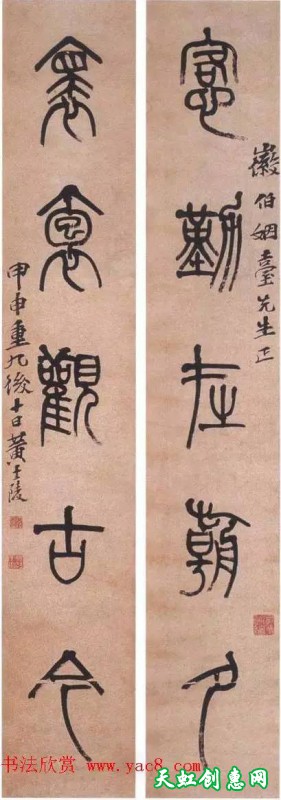 徽伯姻臺先生正
愙勤在朝夕
褱袌觀古今
甲申重九後十日黃士陵
书法欣赏 www.yac8.com
天虹创惠网